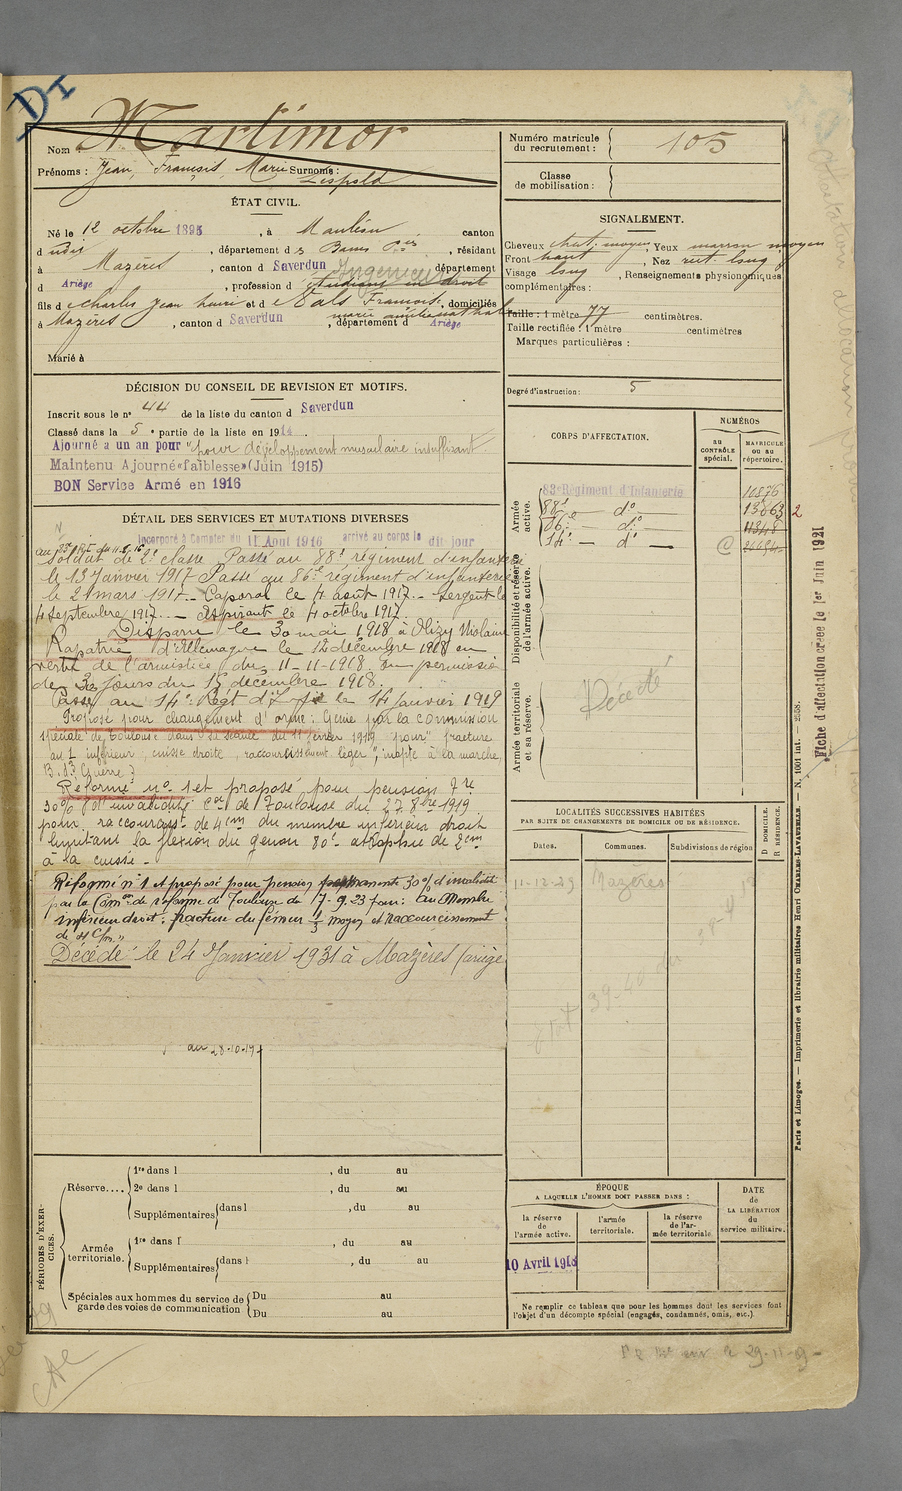 DI
Nom : Martimor
Prénoms : Jean, François, Marie Surnoms :
Léopold
ÉTAT CIVIL.
Né le 12 octobre 1895, à Mauléon canton
d udit, département d es Basses Pées, résidant
à Mazères, canton d Saverdun département
Ingénieur
d Ariège, profession d étudiant en droit
fils d e Charles Jean Henri et d e Eals Françoise, domiciliés
marie amélie nathal
à Mazères, canton d Saverdun, département d Ariège
Marié à
DÉCISION DU CONSEIL DE REVISION ET MOTIFS.
Inscrit sous le n° 44 de la liste du canton d Saverdun
Classé dans la 5e partie de la liste en 1914.
Ajourné a un an pour "pour développement musculaire insuffisant"
Maintenu Ajourné «faiblesse» (Juin 1915)
BON Service Armé en 1916
DÉTAIL DES SERVICES ET MUTATIONS DIVERSES
Incorporé à Compter du 11 Aout 1916 arrivé au corps le dit jour
Soldat de 2e classe Passé au 88e régiment d'infanterie
le 13 Janvier 1917 Passé au 86e régiment d'infanterie
le 21 mars 1917. - Caporal le 4 août 1917 - Sergent le
4 septembre 1917. - Aspirant le 4 octobre 1917.
Disparu le 30 mai 1918 à Vizy
Rapatrié d'Allemagne le 12 décembre 1918 en
vertu de l'armistice du 11-11-1918. En permission
de 30 jours du 15 décembre 1918.
Passé au 14e Régt d'Ife le 14 Janvier 1919
Proposé pour changement d'arme : Génie par la commission
spéciale de Toulouse dans sa séance du 11 février 1919 pour "fracture
au 1/3 inférieur, cuisse droite, raccourcissement léger", inapte à la marche,
B. de Guerre
Réformé n° 1 et proposé pour pension 7re
30% d'invalidité Con de Toulouse du 27 8bre 1919
pour raccourcist de 4cm du membre inférieur droit
limitant la flexion du genou 80° atrophie de 2cm
à la cuisse -
Réformé n° 1 et proposé pour pension permanente 30% d'invalidité
par la Comon de réforme de Toulouse du 7-9-23 pour : Au Membre
inférieur droit : fracture du fémur 1/3 moyen et raccourcissement
de 4 cm."
Décédé le 24 Janvier 1931 à Mazères (ariège
du 28-10-19
PÉRIODES D'EXERCICES.
Réserve....
1re dans l , du au
2e dans l , du au
Supplémentaires dans l , du au
Armée territoriale.
1re dans l' , du au
Supplémentaires dans l , du au
Spéciales aux hommes du service de garde des voies de communication
Du au
Du au
Numéro matricule du recrutement : 105
Classe de mobilisation :
SIGNALEMENT.
Cheveux chat. moyen, Yeux marron moyen
Front haut, Nez rect. long
Visage long, Renseignements physionomiques
complémentaires :
Taille : 1 mètre 77 centimètres.
Taille rectifiée : 1 mètre centimètres
Marques particulières :
Degré d'instruction : 5
CORPS D'AFFECTATION.
NUMÉROS
au CONTRÔLE spécial.
MATRICULE OU AU répertoire.
Armée active.
83e Régiment d'Infanterie 10876
88e do 13863 2
86e - do - 11348
14e - do - C
Disponibilité et réserve de l'armée active.
Armée territoriale et sa réserve.
Décédé
LOCALITÉS SUCCESSIVES HABITÉES
PAR SUITE DE CHANGEMENTS DE DOMICILE OU DE RÉSIDENCE.
Dates. Communes. Subdivisions de région D DOMICILE. R RÉSIDENCE.
11-12-29 Mazères
ÉPOQUE
A LAQUELLE L'HOMME DOIT PASSER DANS :
la réserve de l'armée active.
l'armée territoriale.
la réserve de l'armée territoriale
DATE de LA LIBÉRATION du service militaire.
10 Avril 1918
Ne remplir ce tableau que pour les hommes dont les services font
l'objet d'un décompte spécial (engagés, condamnés, omis, etc.).
Paris et Limoges. — Imprimerie et librairie militaires Henri CHARLES-LAVAUZELLE. — N. 1001 int. — 2558.
Fiche d'affectation créée le 1er Juin 1921
29-11-29